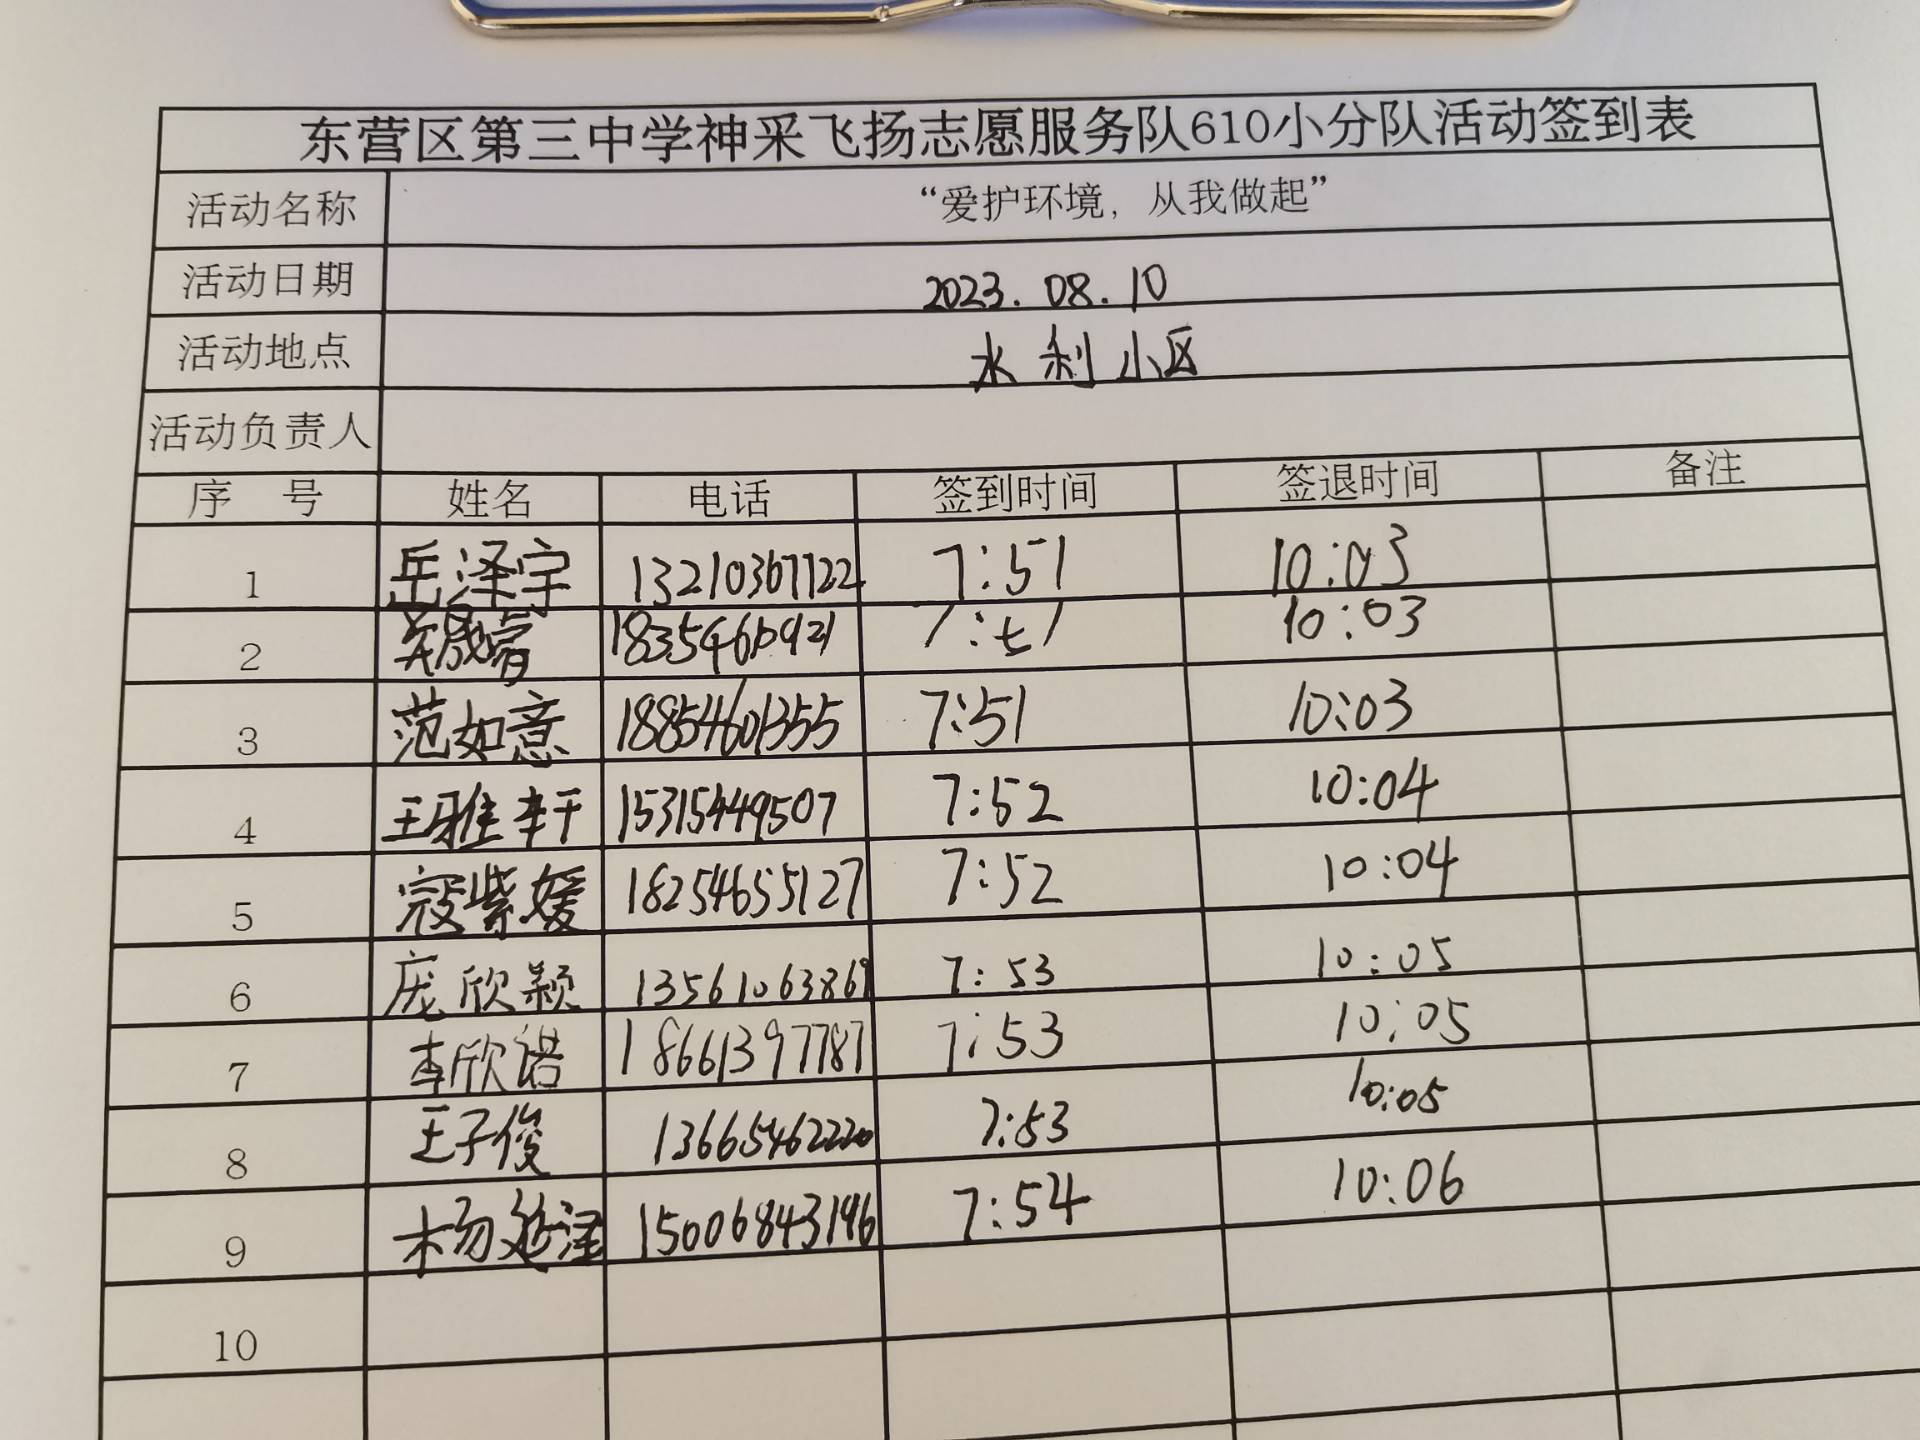 东营区第三中学神采飞扬志愿服务队610小分队活动签到表
活动名称 “爱护环境，从我做起”
活动日期 2023.08.10
活动地点 水利小区
活动负责人
序 号 姓名 电话 签到时间 签退时间 备注
1 岳泽宇 13210367122 7:51 10:03
2 7:51 10:03
3 范如意 18854601355 7:51 10:03
4 王雅轩 15315449507 7:52 10:04
5 寇紫媛 18254655127 7:52 10:04
6 庞欣颖 13561063861 7:53 10:05
7 李欣诺 18661397787 7:53 10:05
8 王子俊 13665462220 7:53 10:05
9 杨延泽 15006843196 7:54 10:06
10